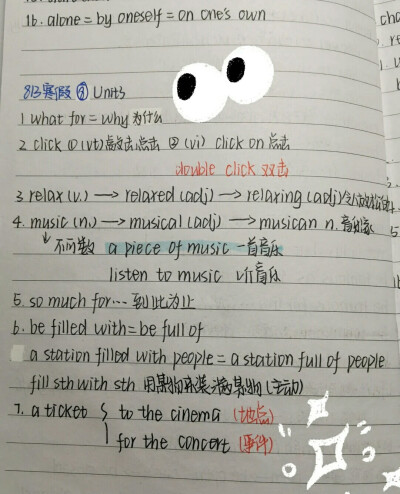 1b. alone = by oneself = on one's own
8B寒假 ⑧ Unit5
1 what for = why 为什么
2 click ①(vt)点击 ②(vi) click on 点击
double click 双击
3 relax (v.) → relaxed (adj) → relaxing (adj)
4. music (n.) → musical (adj) → musican n. 音乐家
↓不可数 a piece of music 一首音乐
listen to music 听音乐
5. so much for… 到此为止
6. be filled with = be full of
a station filled with people = a station full of people
fill sth with sth 用某物来装满某物 (主动)
7. a ticket { to the cinema (地点)
for the concert (事件)